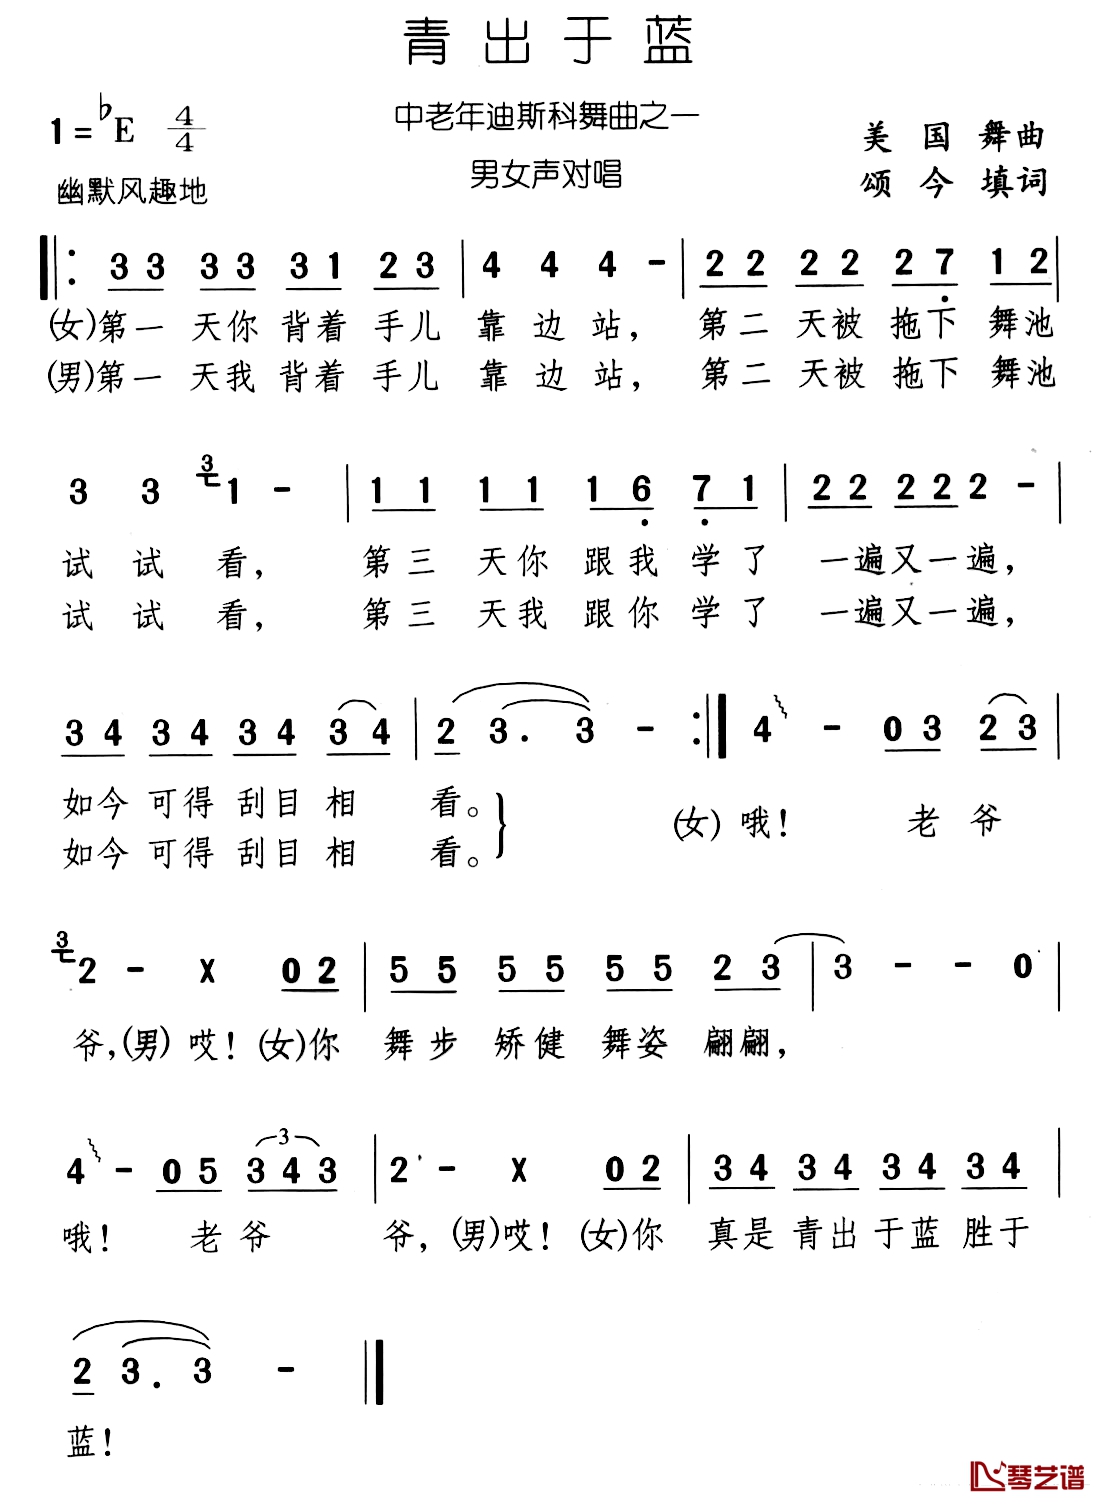 青出于蓝
中老年迪斯科舞曲之一
男女声对唱
1=♭E 4/4
幽默风趣地
美国 舞曲
颂今 填词
3 3 3 3 3 1 2 3 | 4 4 4 - | 2 2 2 2 2 7 1 2
(女)第一 天你 背着 手儿 靠 边 站, 第二 天被 拖下 舞池
(男)第一 天我 背着 手儿 靠 边 站, 第二 天被 拖下 舞池
3 3 3 1 - | 1 1 1 1 1 6 7 1 | 2 2 2 2 2 2 - |
试 试 看, 第三 天你 跟我 学了 一遍又一遍,
试 试 看, 第三 天我 跟你 学了 一遍又一遍,
3 4 3 4 3 4 3 4 | 2 3. 3 - :| 4 - 0 3 2 3 |
如今 可得 刮目 相 看。 (女) 哦! 老 爷
如今 可得 刮目 相 看。
3 2 - X 0 2 | 5 5 5 5 5 5 2 3 | 3 - - 0 |
爷,(男) 哎! (女)你 舞步 矫健 舞姿 翩翩,
4 - 0 5 3 4 3 | 2 - X 0 2 | 3 4 3 4 3 4 3 4 |
哦! 老 爷 爷, (男)哎! (女)你 真是 青出 于蓝 胜于
2 3. 3 - ‖
蓝!
琴艺谱